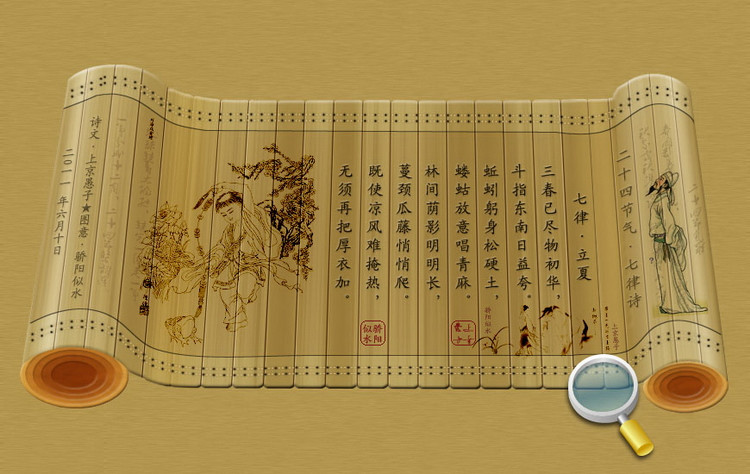 二十四节气·七律诗
七律·立夏
三春已尽物初华，
斗指东南日益夸。
蚯蚓躬身松硬土，
蝼蛄放意唱青麻。
林间荫影明明长，
蔓颈瓜藤悄悄爬。
既使凉风难掩热，
无须再把厚衣加。
骄阳似水
骄阳似水
诗文·上京愚子★图意·骄阳似水
二〇一一年六月十日